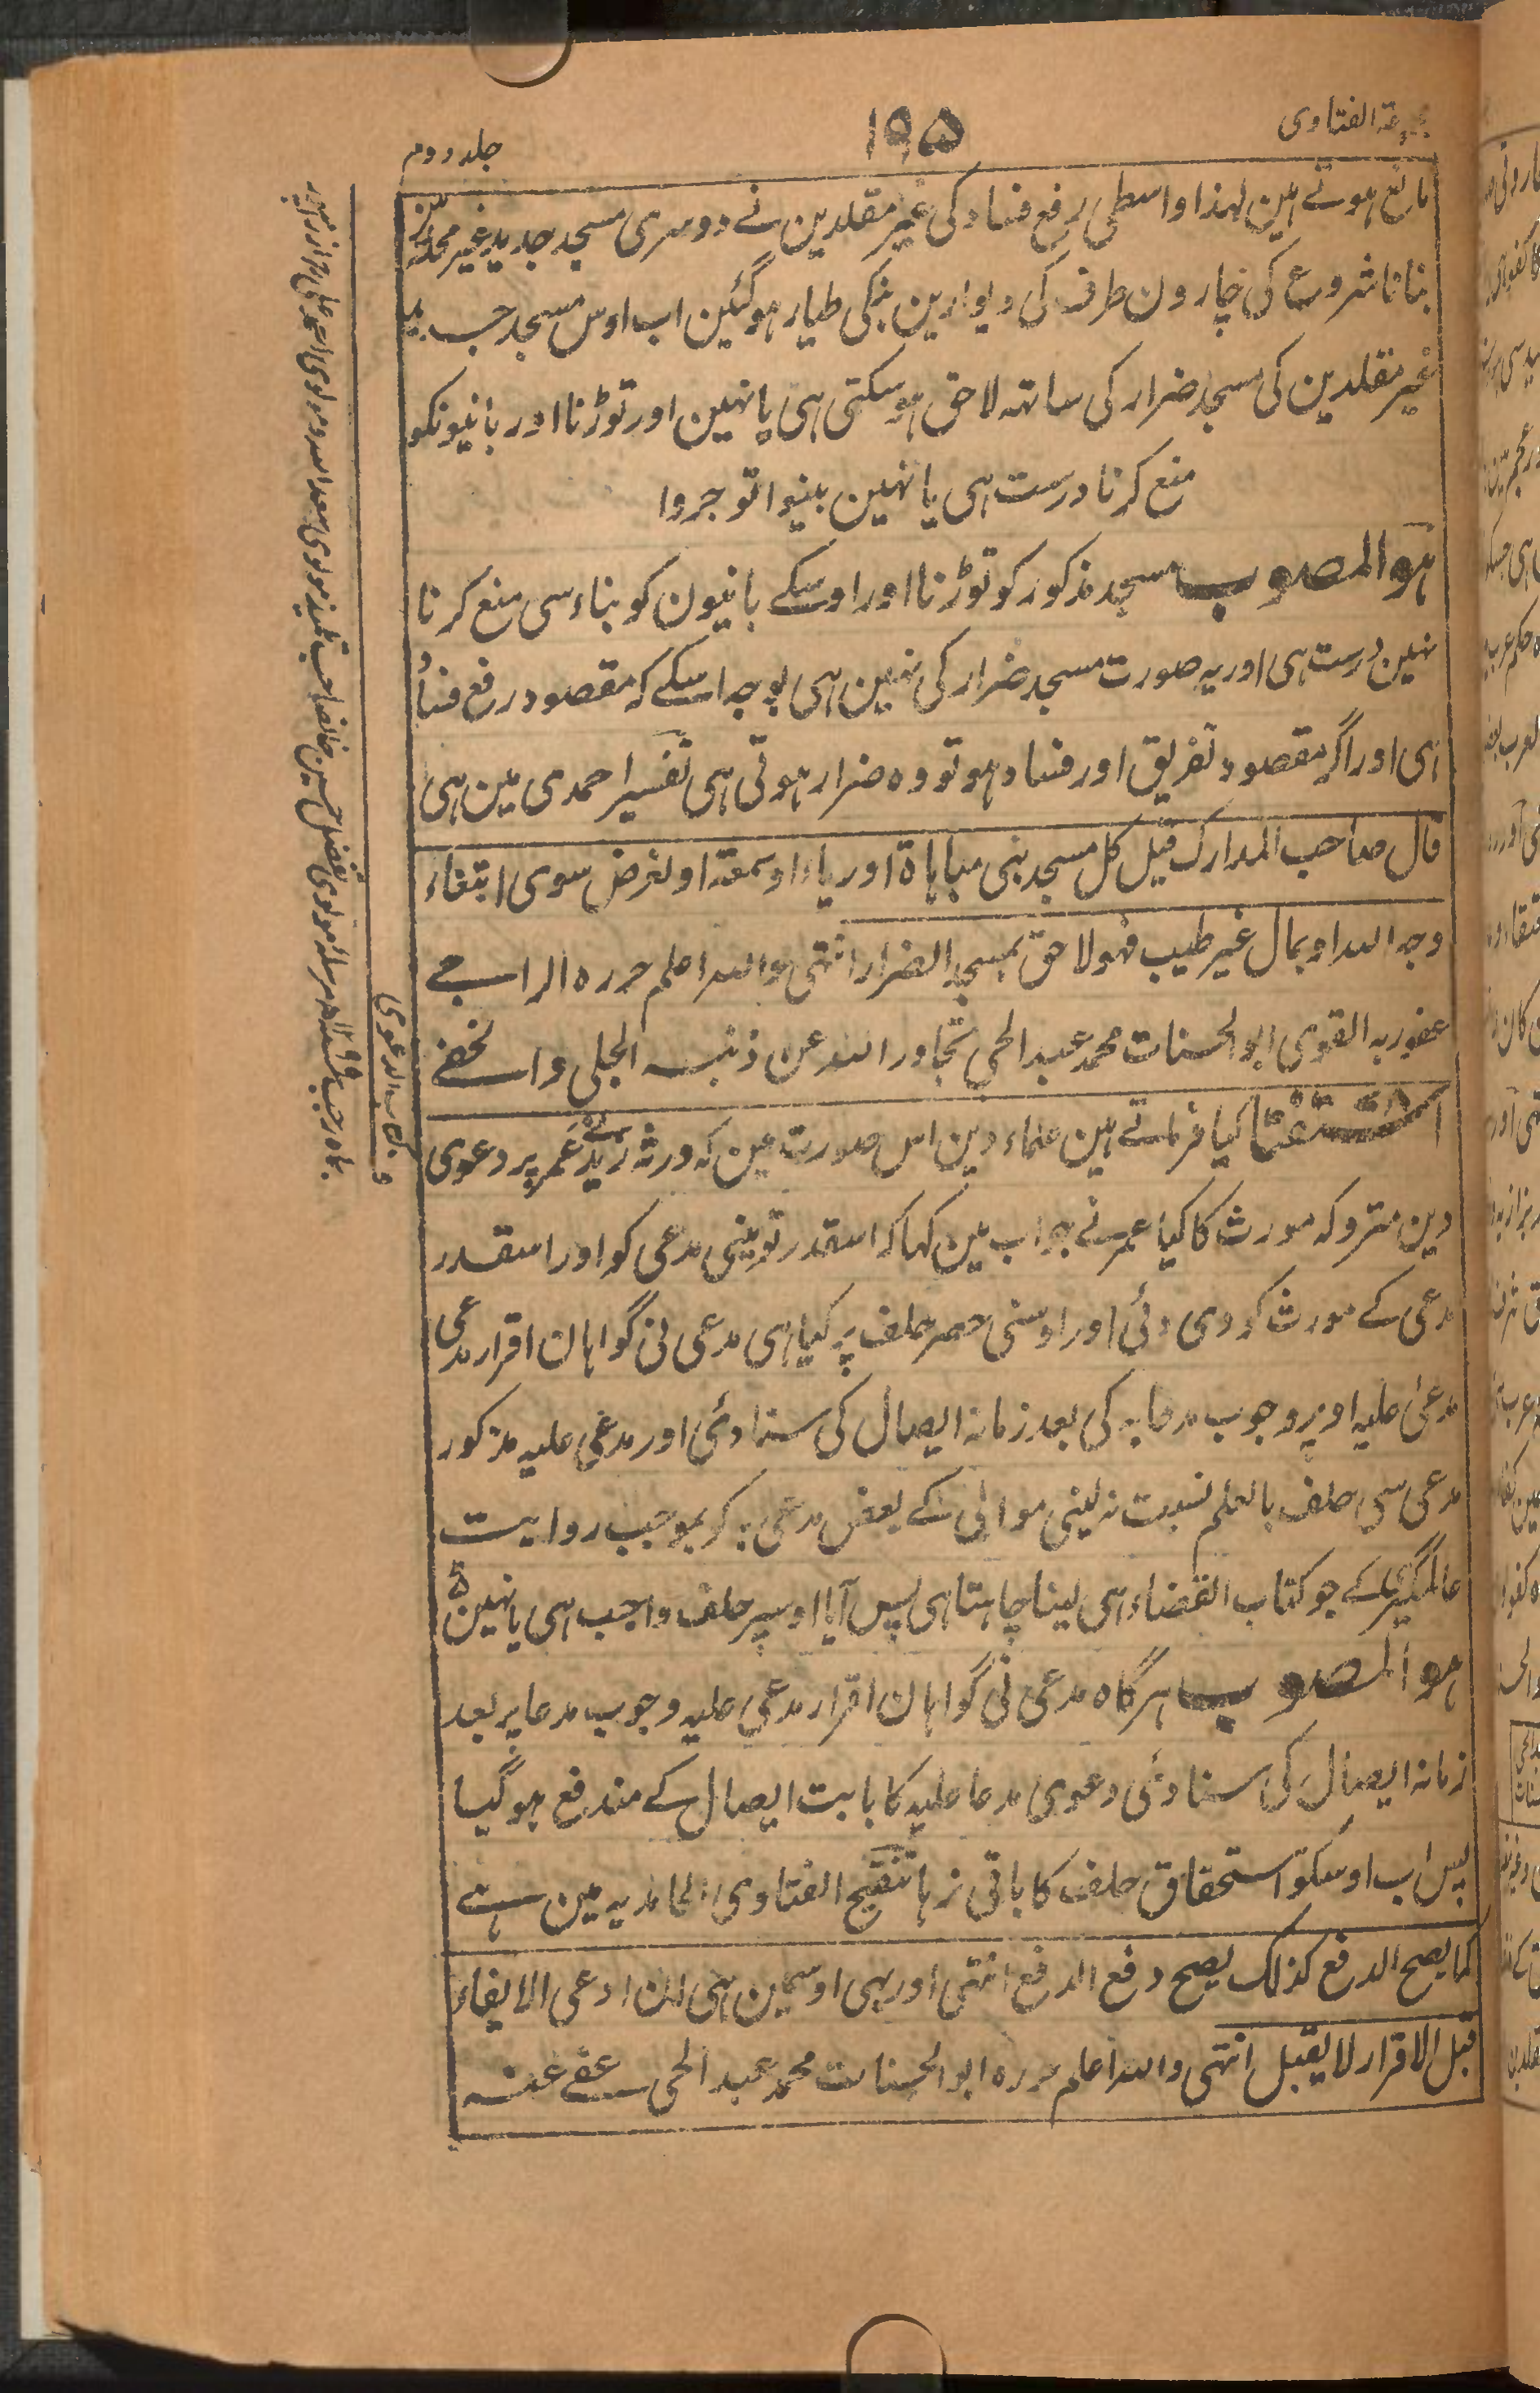 مجموعۃ الفتاوی
۱۹۵
جلد دوم
مانع ہوتے ہین لہذا واسطی رفع فساد کی غیر مقلدین نے دوسری مسجد جدید غیر محلہ مین
بنانا شروع کی چارون طرف کی دیوارین بنکی طیار ہوگئین اب اوس مسجد جدید
غیر مقلدین کی مسجد ضرار کی ساتہ لاحق ہوسکتی ہی یا نہین اور توڑنا اور بانیونکو
منع کرنا درست ہی یا نہین بینوا توجروا
ہو المصوب مسجد مذکور کو توڑنا اور اوسکے بانیون کو بناء سی منع کرنا
نہین درست ہی اور یہ صورت مسجد ضرار کی نہین ہی بوجہ اسکے کہ مقصود رفع فساد
ہی اور اگر مقصود تفریق اور فساد ہو تو وہ ضرار ہوتی ہی تفسیر احمدی مین ہی
قال صاحب المدارک قیل کل مسجد بنی مباہاۃ اوریاء اوسمعۃ اولغرض سوی ابتغاء
وجہ اللہ اوبمال غیر طیب فہو لاحق بمسجد الضرار انتہی واللہ اعلم حررہ الراجے
عفو ربہ القوی ابو الحسنات محمد عبد الحی تجاوز اللہ عن ذنبہ الجلی والخفے
استفتا کیا فرماتے ہین علماء دین اس صورت مین کہ ورثہ زید نے عمر پر دعوی
دین متروکہ مورث کا کیا عمر نے جواب مین کہا کہ اسقدر تو مینی مدعی کو اور اسقدر
مدعی کے مورث کو دی دئی اور اوسنی حصر حلف پر کیا ہی مدعی نی گواہان اقرار مدعی
مدعی علیہ اوپر وجوب مدعا بہ کی بعد زمانہ ایصال کی سنا دئی اور مدعی علیہ مذکور
مدعی سی حلف بالعلم نسبت نہ لینی موالی کے بعض مدعی بہ کو بموجب روایت
عالمگیری کے جو کتاب القضاء ہی لینا چاہتا ہی پس آیا اوسپر حلف واجب ہی یا نہین
ہو المصوب ہرگاہ مدعی نی گواہان اقرار مدعی علیہ وجوب مدعا بہ بعد
زمانہ ایصال کی سنا دئی دعوی مدعا علیہ کا بابت ایصال کے مندفع ہو گیا
پس اب اوسکو استحقاق حلف کا باقی نرہا تنقیح الفتاوی الحامدیہ مین ہے
کما یصح الدفع کذلک یصح دفع الدفع انتہی اور بہی اوسمین ہی ان ادعی الایفاء
قبل الاقرار لا یقبل انتہی واللہ اعلم حررہ ابو الحسنات محمد عبد الحی عفے عنہ
کتاب الدعوی